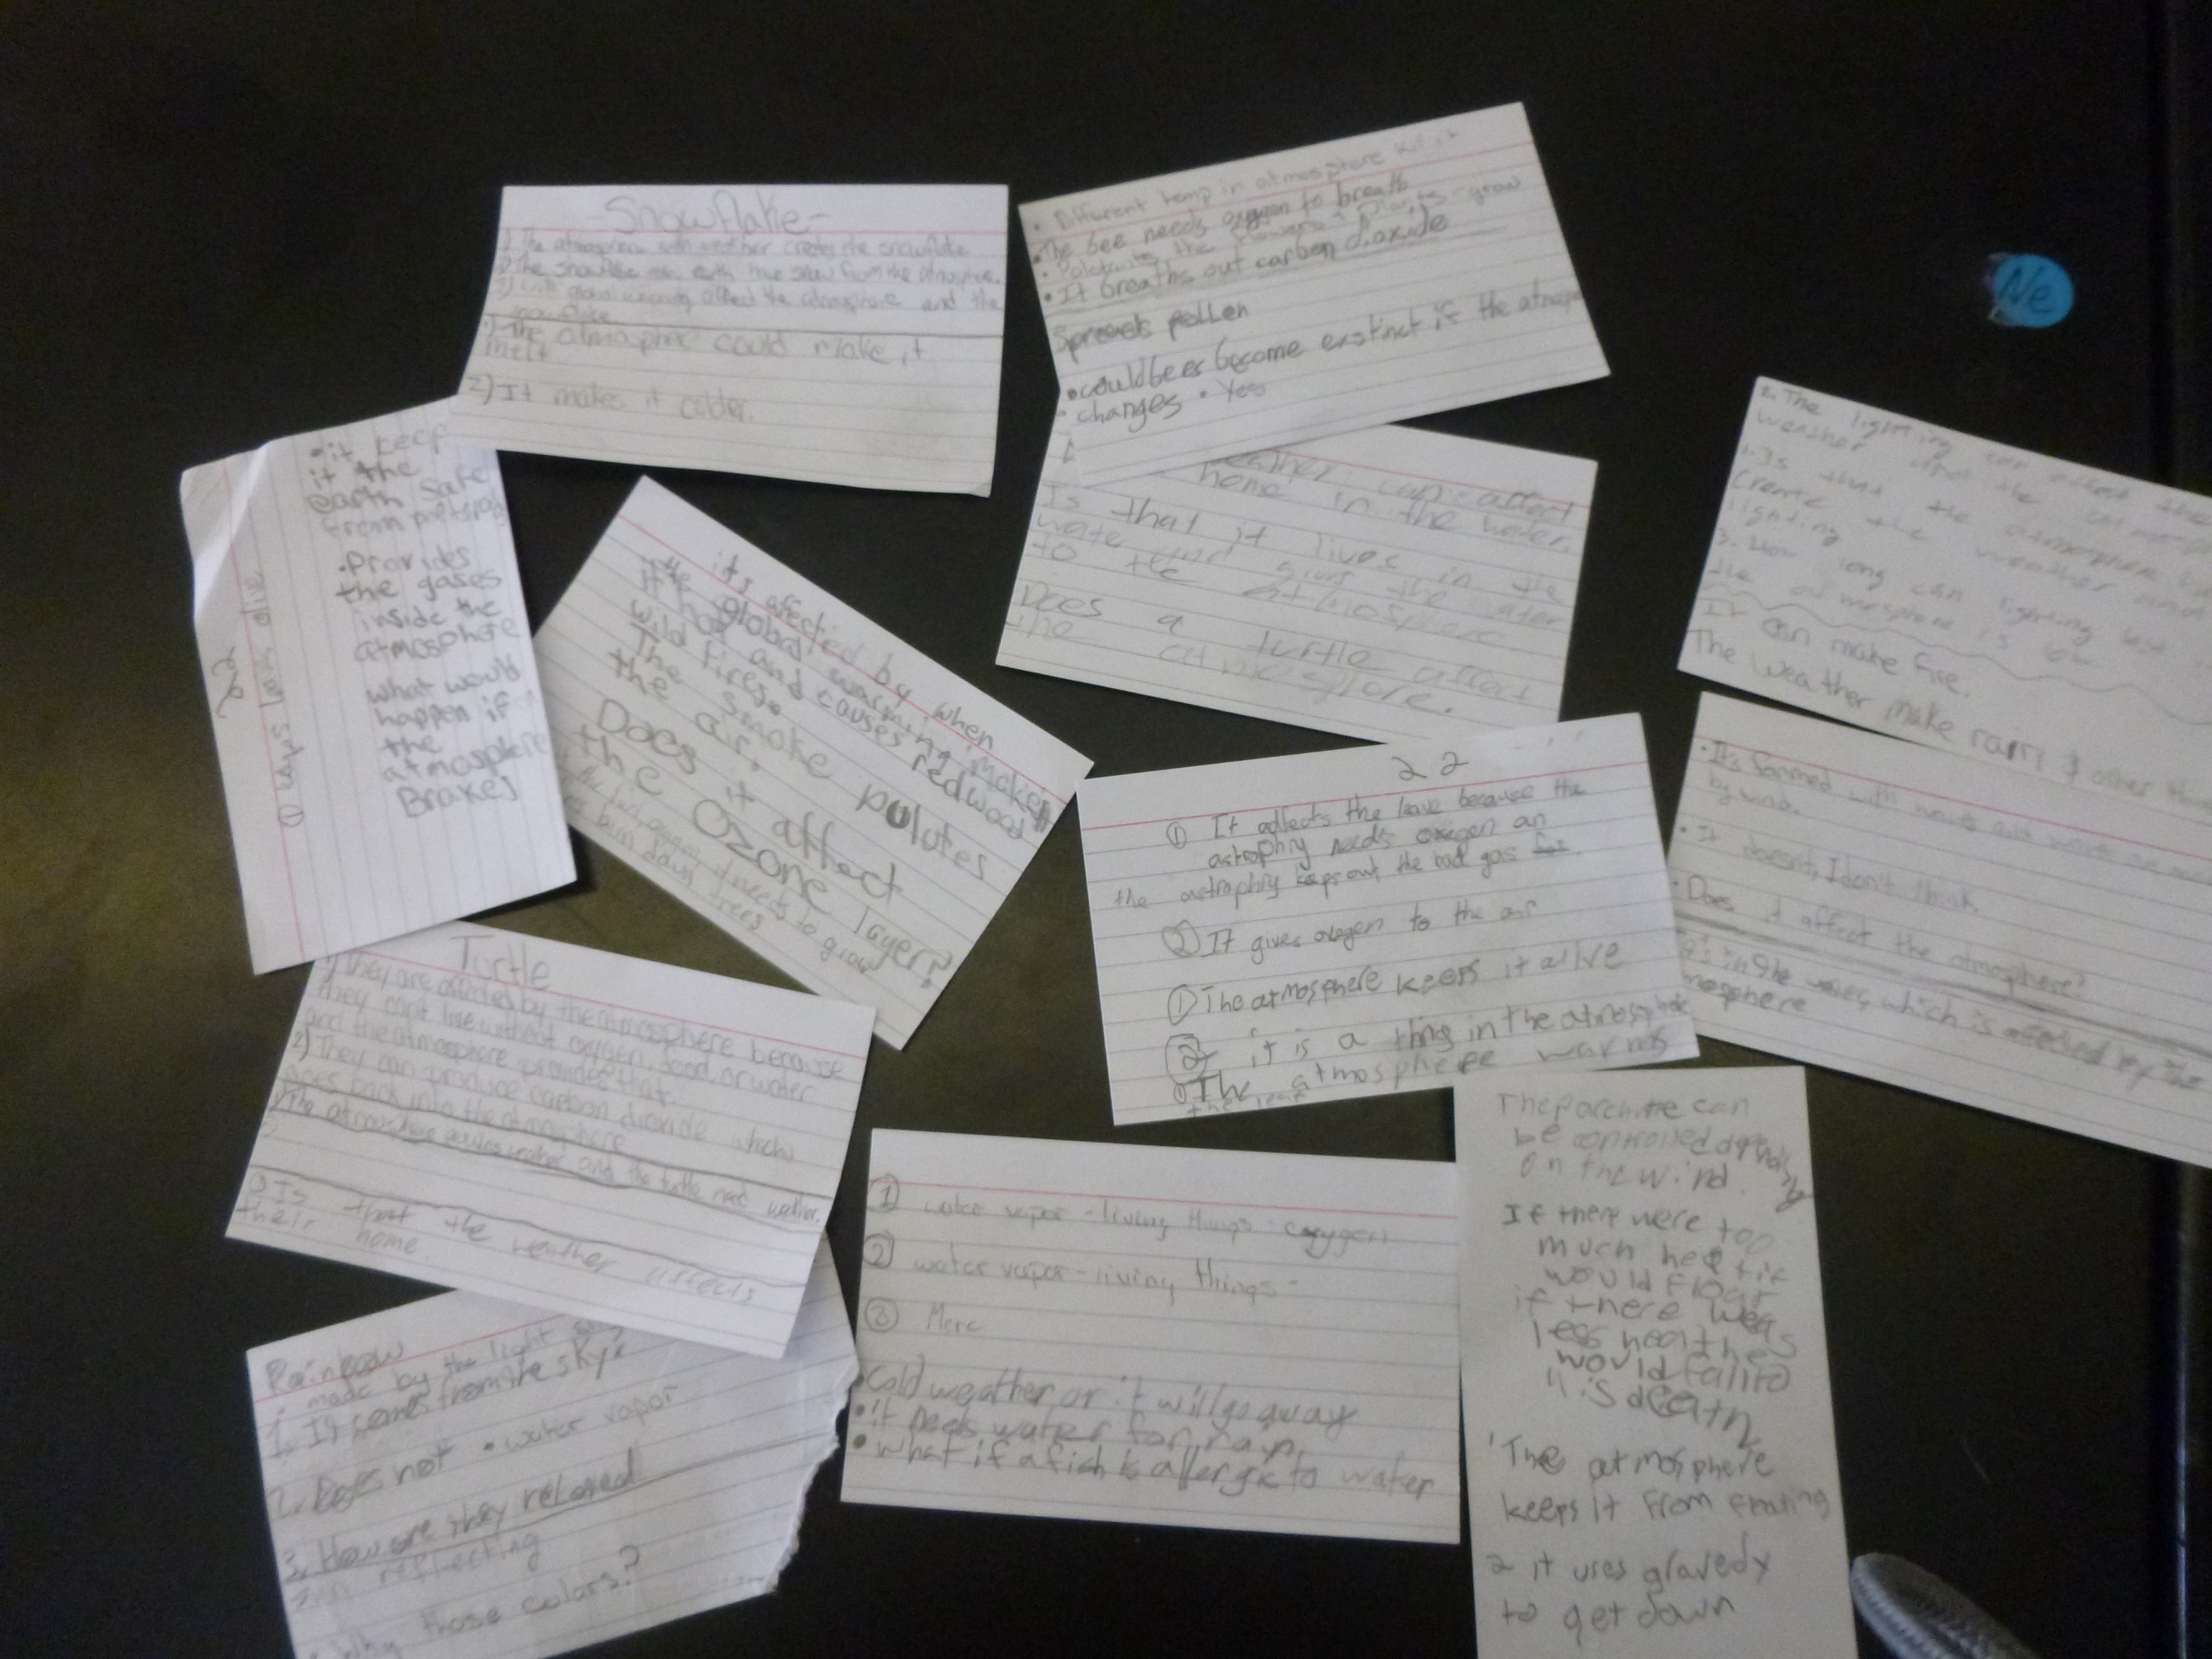 -Snowflake-
1) The atmosphere with weather creates the snowflake
2) The snowflake earth snow from the atmosphere.
3) Will global warming affect the atmosphere and the
snowflake
1) The atmosphere could make it
melt
2) It makes it colder.
• Different temp in atmosphere kill it
• The bee needs oxygen to breath
the flowers + plants - grow
• It breaths out carbon dioxide
Spreads pollen
• could bees become exstinct if the atmosp
changes • Yes
Ne
•it keep
it the
earth safe
from
•Provides
the gases
inside the
atmosphere
what would
happen if
the
atmosphere
Brakes
22
its affected by when
the global warming makes
it hot and causes redwood
wild fires.
The smoke polutes
the air.
Does it affect
the Ozone layer?
the oxygen it needs to grow
burn down trees
weather can affect
home in the water.
Is that it lives in the
water and gives the water
to the atmosphere
Does a turtle affect
the atmosphere.
2. The lighting can affect the
weather and the atmosphere
1. Is that the atmosphere
create the weather and
lighting
3. How long can lighting
the atmosphere is low
It can make fire.
The weather make rain & other
• It's formed with waves and
by wind.
• It doesn't, I don't think.
• Does it affect the atmosphere?
in the waves, which is affected by the
mosphere
22
① It adfects the leave because the
astrophry needs oxegen an
the astrophry keeps out the bad gas
② It gives oxegen to the air
① The atmosphere keeps it alive
② it is a thing in the atmosphere
① The atmosphere warms
the leaf
Turtle
1) They are affected by the atmosphere because
they cant live without oxygen, food, or water
and the atmosphere provides that.
2) They can produce carbon dioxide which
goes back into the atmosphere
1) The atmosphere weather and the turtle need weather.
2)
① Is that the weather affects
their home.
① water vapor - living things - oxygen
② water vapor - living things -
③ More
• Cold weather or it will go away
• it needs water for rain
• what if a fish is allergic to water
Rainbow
made by the light
1. It comes from the sky
2. Does not • water vapor
3. How are they related
sun reflecting
Why those colors?
The parchute can
be controlled
on the wind.
If there were too
much heat it
would float
if there was
less heat he
would fall to
is death
'The atmosphere
keeps it from floating
2 it uses gravedy
to get down